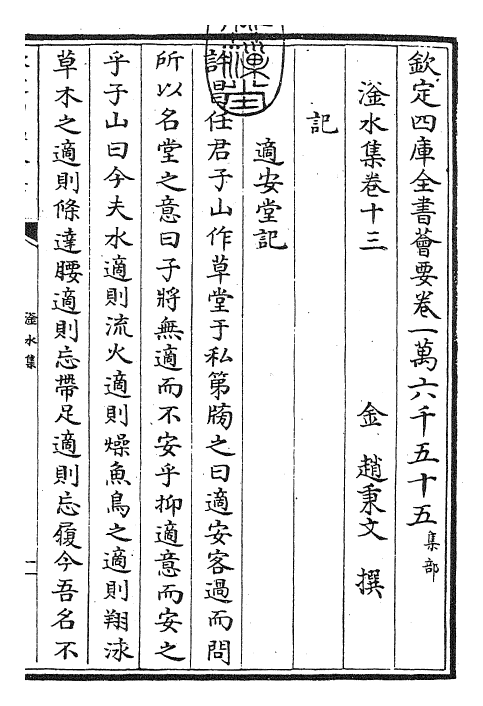 欽定四庫全書薈要卷一萬六千五十五集部
滏水集卷十三　金　趙秉文　撰
記
適安堂記
許昌任君子山作草堂于私第牓之曰適安客過而問
所以名堂之意曰子將無適而不安乎抑適意而安之
乎子山曰今夫水適則流火適則燥魚鳥之適則翔泳
草木之適則條達腰適則忘帶足適則忘履今吾名不
滏水集
一